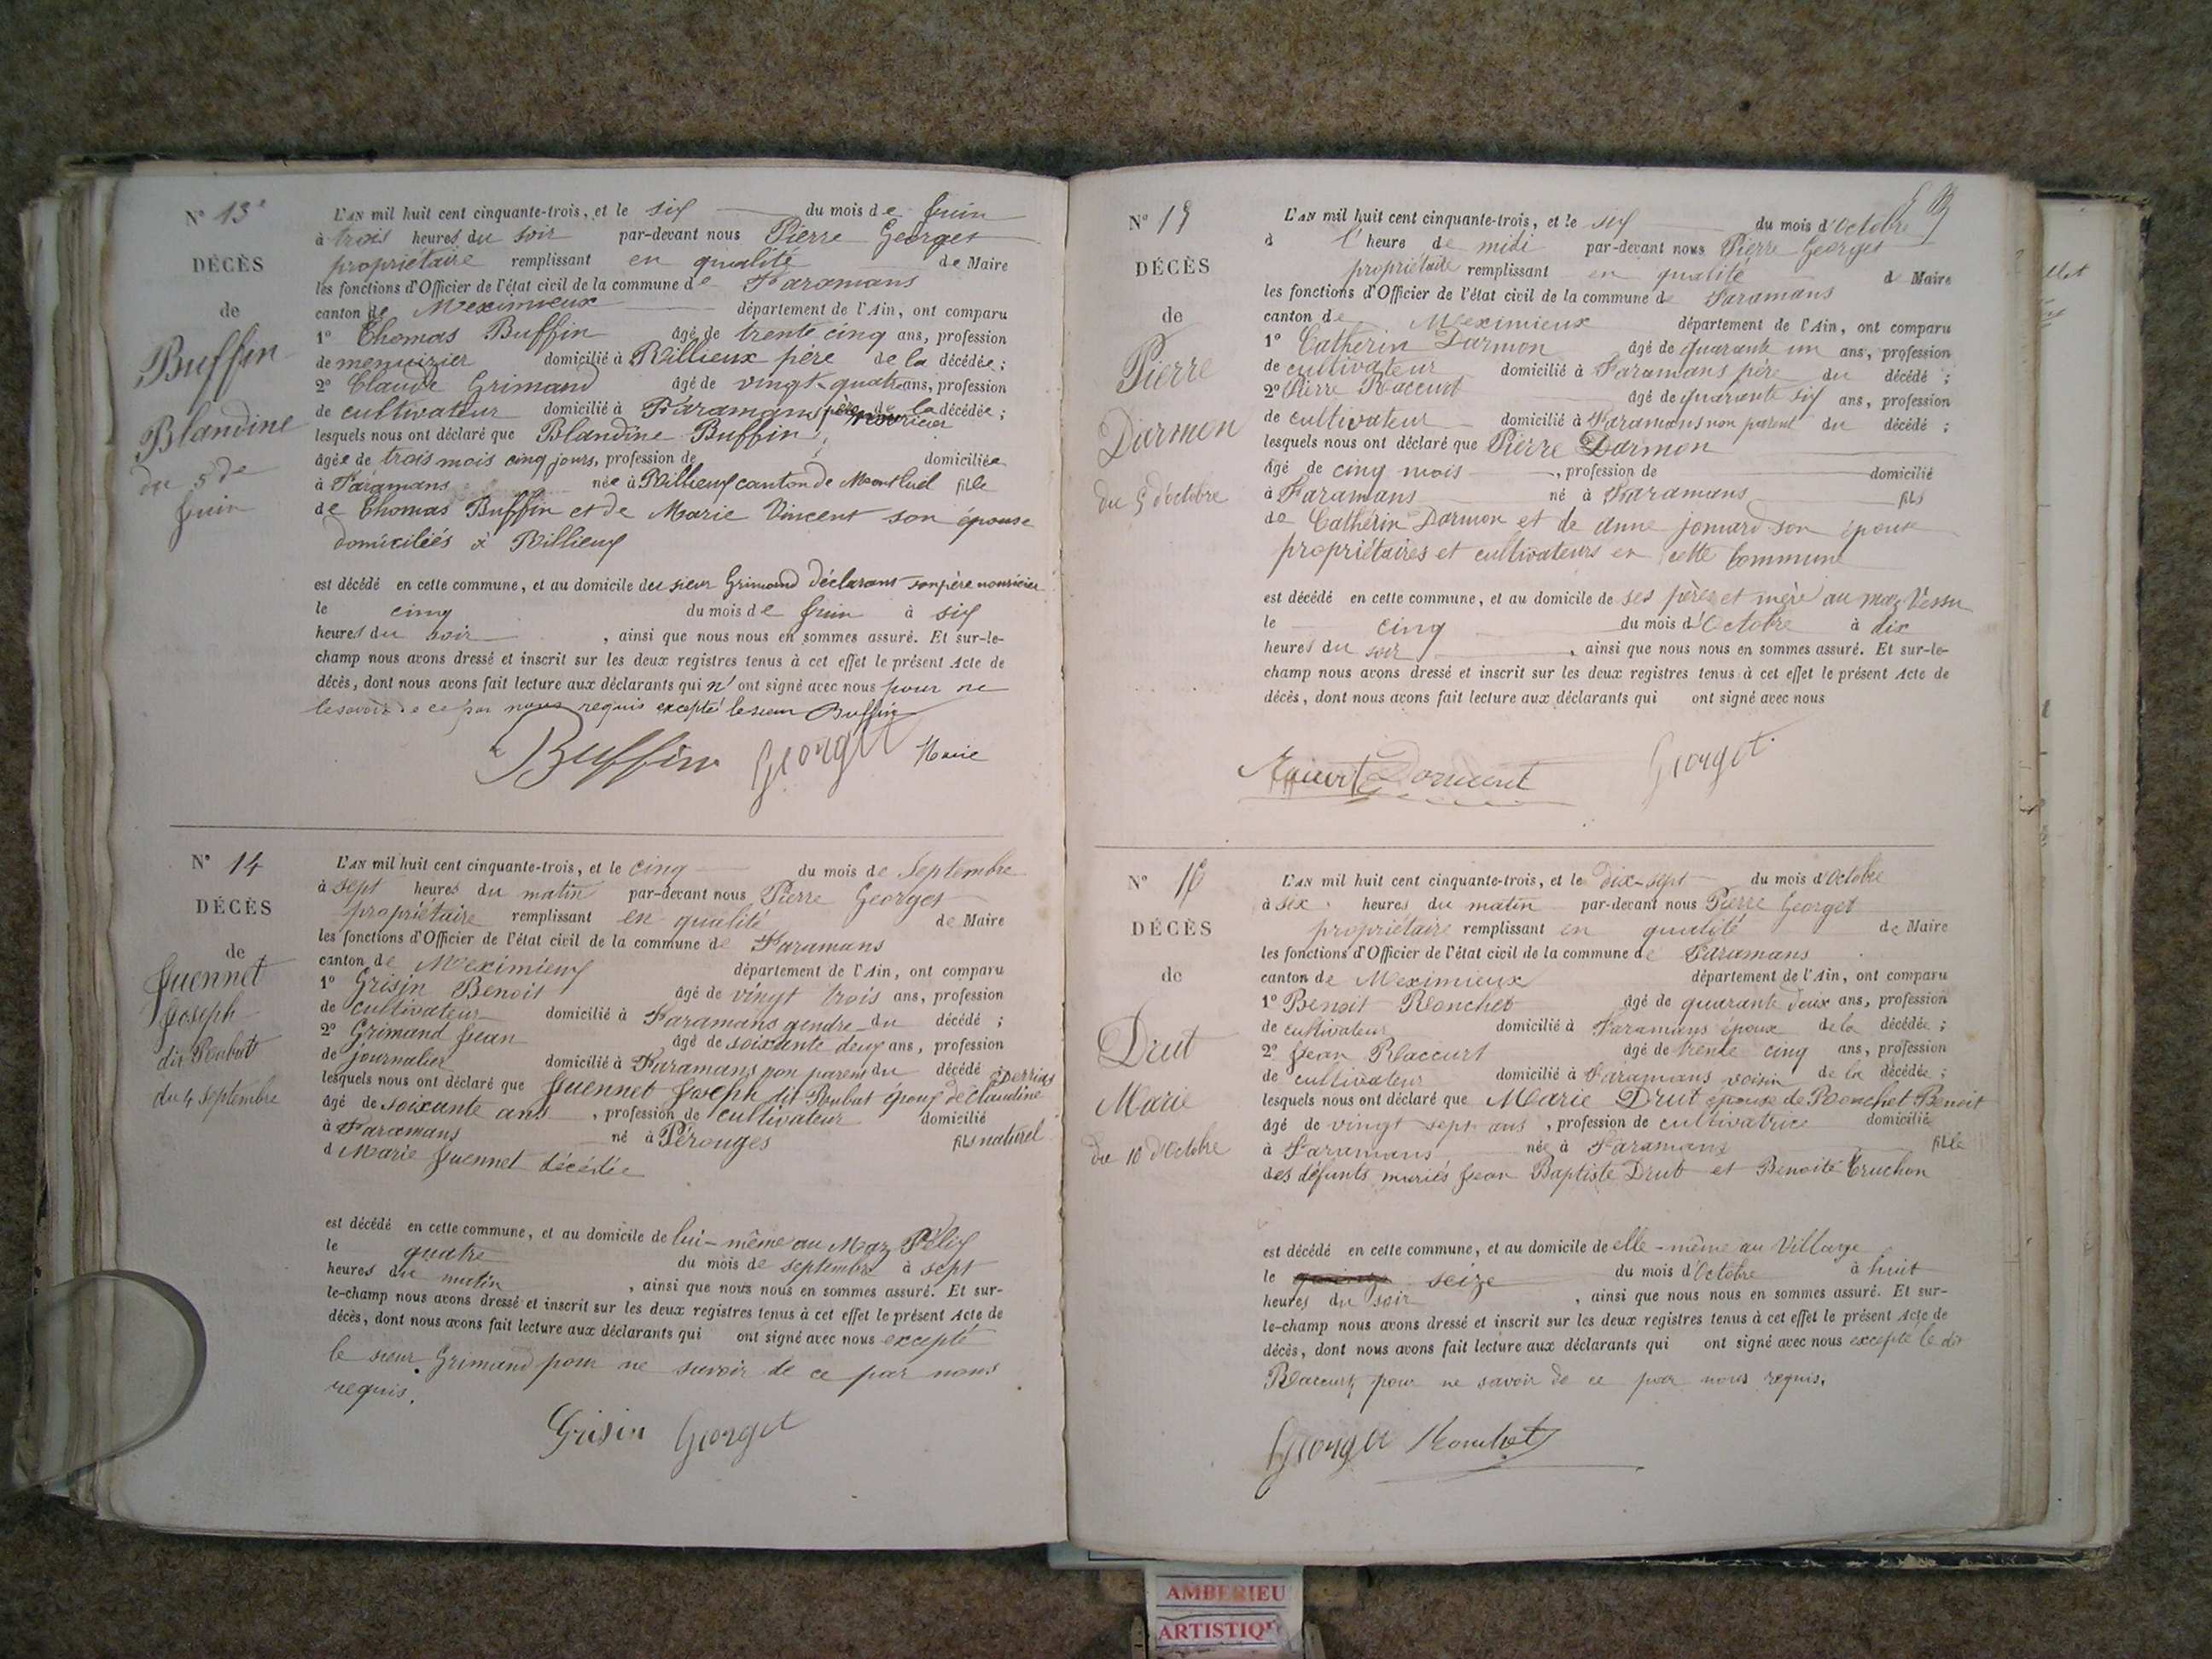 N° 13e
DÉCÈS
de
Buffin
Blandine
du 5 de
juin
L'AN mil huit cent cinquante-trois, et le six du mois de juin
à trois heures du soir par-devant nous Pierre Georget
propriétaire remplissant en qualité de Maire
les fonctions d'Officier de l'état civil de la commune de Faramans
canton de Meximieux département de l'Ain, ont comparu
1° Thomas Buffin âgé de trente cinq ans, profession
de menuizier domicilié à Rillieux père de la décédée;
2° Claude Grimand âgé de vingt-quatre ans, profession
de cultivateur domicilié à Faramans père de la décédée;
nouricier
lesquels nous ont déclaré que Blandine Buffin,
âgée de trois mois cinq jours, profession de domiciliée
à Faramans née à Rillieux canton de Montluel fille
de Thomas Buffin et de Marie Vincent son épouse
domiciliés à Rillieux
est décédé en cette commune, et au domicile deu sieur Grimand déclarant son père nouricier
le cinq du mois de juin à six
heures du soir, ainsi que nous nous en sommes assuré. Et sur-le-
champ nous avons dressé et inscrit sur les deux registres tenus à cet effet le présent Acte de
décès, dont nous avons fait lecture aux déclarants qui n'ont signé avec nous pour ne
le savoir de ce par nous requis excepté le sieur Buffin
Buffin Georget Maire
N° 14
DÉCÈS
de
Juennet
Joseph
dit Roubat
du 4 septembre
L'AN mil huit cent cinquante-trois, et le cinq du mois de Septembre
à sept heures du matin par-devant nous Pierre Georget
propriétaire remplissant en qualité de Maire
les fonctions d'Officier de l'état civil de la commune de Faramans
canton de Meximieux département de l'Ain, ont comparu
1° Grisin Benoit âgé de vingt trois ans, profession
de cultivateur domicilié à Faramans gendre du décédé;
2° Grimand Jean âgé de soixante deux ans, profession
de journalier domicilié à Faramans non parent du décédé;
lesquels nous ont déclaré que Juennet Joseph dit Roubat époux de Claudine
âgé de soixante ans, profession de cultivateur domicilié
à Faramans né à Pérouges fils naturel
d Marie Juennet décédée
est décédé en cette commune, et au domicile de lui-même au Maz Pélix
le quatre du mois de septembre à sept
heures du matin, ainsi que nous nous en sommes assuré. Et sur-
le-champ nous avons dressé et inscrit sur les deux registres tenus à cet effet le présent Acte de
décès, dont nous avons fait lecture aux déclarants qui ont signé avec nous excepté
le sieur Grimand pour ne savoir de ce par nous
requis.
Grisin Georget
N° 15
DÉCÈS
de
Pierre
Darmon
du 5 d'octobre
L'AN mil huit cent cinquante-trois, et le six du mois d'Octobre
à l'heure de midi par-devant nous Pierre Georget
propriétaire remplissant en qualité de Maire
les fonctions d'Officier de l'état civil de la commune de Faramans
canton de Meximieux département de l'Ain, ont comparu
1° Cathérin Darmon âgé de quarante un ans, profession
de cultivateur domicilié à Faramans père du décédé;
2° Pierre Raccurt âgé de quarante six ans, profession
de cultivateur domicilié à Faramans non parent du décédé;
lesquels nous ont déclaré que Pierre Darmon
âgé de cinq mois, profession de domicilié
à Faramans né à Faramans fils
de Cathérin Darmon et de Anne jomard son épouse
propriétaires et cultivateurs en cette Commune
est décédé en cette commune, et au domicile de ses pères et mère au maz Vessu
le cinq du mois d'Octobre à dix
heures du soir, ainsi que nous nous en sommes assuré. Et sur-le-
champ nous avons dressé et inscrit sur les deux registres tenus à cet effet le présent Acte de
décès, dont nous avons fait lecture aux déclarants qui ont signé avec nous
Georget
N° 16
DÉCÈS
de
Drut
Marie
du 10 d'Octobre
L'AN mil huit cent cinquante-trois, et le dix-sept du mois d'Octobre
à six heures du matin par-devant nous Pierre Georget
propriétaire remplissant en qualité de Maire
les fonctions d'Officier de l'état civil de la commune de Faramans
canton de Meximieux département de l'Ain, ont comparu
1° Benoit Ronchet âgé de quarante deux ans, profession
de cultivateur domicilié à Faramans époux de la décédée;
2° Jean Raccurt âgé de trente cinq ans, profession
de cultivateur domicilié à Faramans voisin de la décédée;
lesquels nous ont déclaré que Marie Drut épouse de Ronchet Benoit
âgé de vingt sept ans, profession de cultivatrice domicilié
à Faramans née à Faramans fille
des défunts mariés Jean Baptiste Drut et Benoite Truchon
est décédé en cette commune, et au domicile de elle-même au Village
le quinze seize du mois d'Octobre à huit
heures du soir, ainsi que nous nous en sommes assuré. Et sur-
le-champ nous avons dressé et inscrit sur les deux registres tenus à cet effet le présent Acte de
décès, dont nous avons fait lecture aux déclarants qui ont signé avec nous excepté le dit
Raccurt pour ne savoir de ce par nous requis.
Georget Ronchet
AMBERIEU
ARTISTIQU